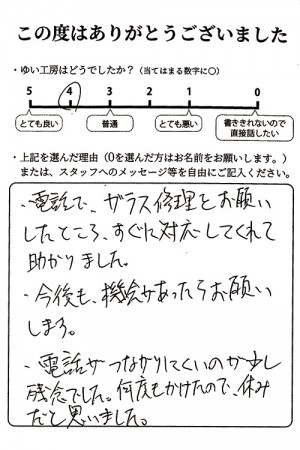 この度はありがとうございました
・ゆい工房はどうでしたか？（当てはまる数字に○）
5 4 3 2 1 0
とても良い 普通 とても悪い 書ききれないので
直接話したい
・上記を選んだ理由（0を選んだ方はお名前をお願いします。）
または、スタッフへのメッセージ等を自由にご記入ください。
・電話で、ガラス修理をお願い
したところ、すぐに対応してくれて
助かりました。
・今後も、機会があったらお願い
します。
・電話がつながりにくいのが少し
残念でした。何度もかけたので、休み
だと思いました。